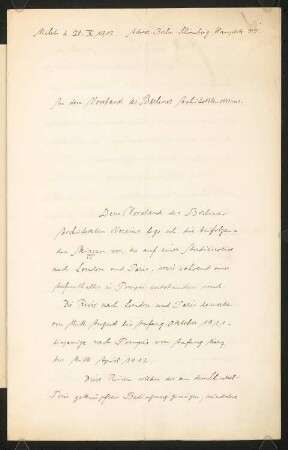 d. 28. X. 1912. Adresse: Berlin Schöneberg
An den Vorstand des Berliner Architektenvereins.
Dem Vorstand des Berliner
Architekten Vereins lege ich die beifolgen-
den Skizzen vor die auf einer Studienreise
nach London und Paris, sowie während eines
Aufenthaltes in Pompei entstanden sind.
Die Reise nach London und Paris dauerte
von Mitte August bis Anfang Oktober 1911.
diejenige nach Pompei von Anfang März
bis Mitte April 1912.
Diese Reisen sollten der an den
Preis geknüpften Bedingung genügen,